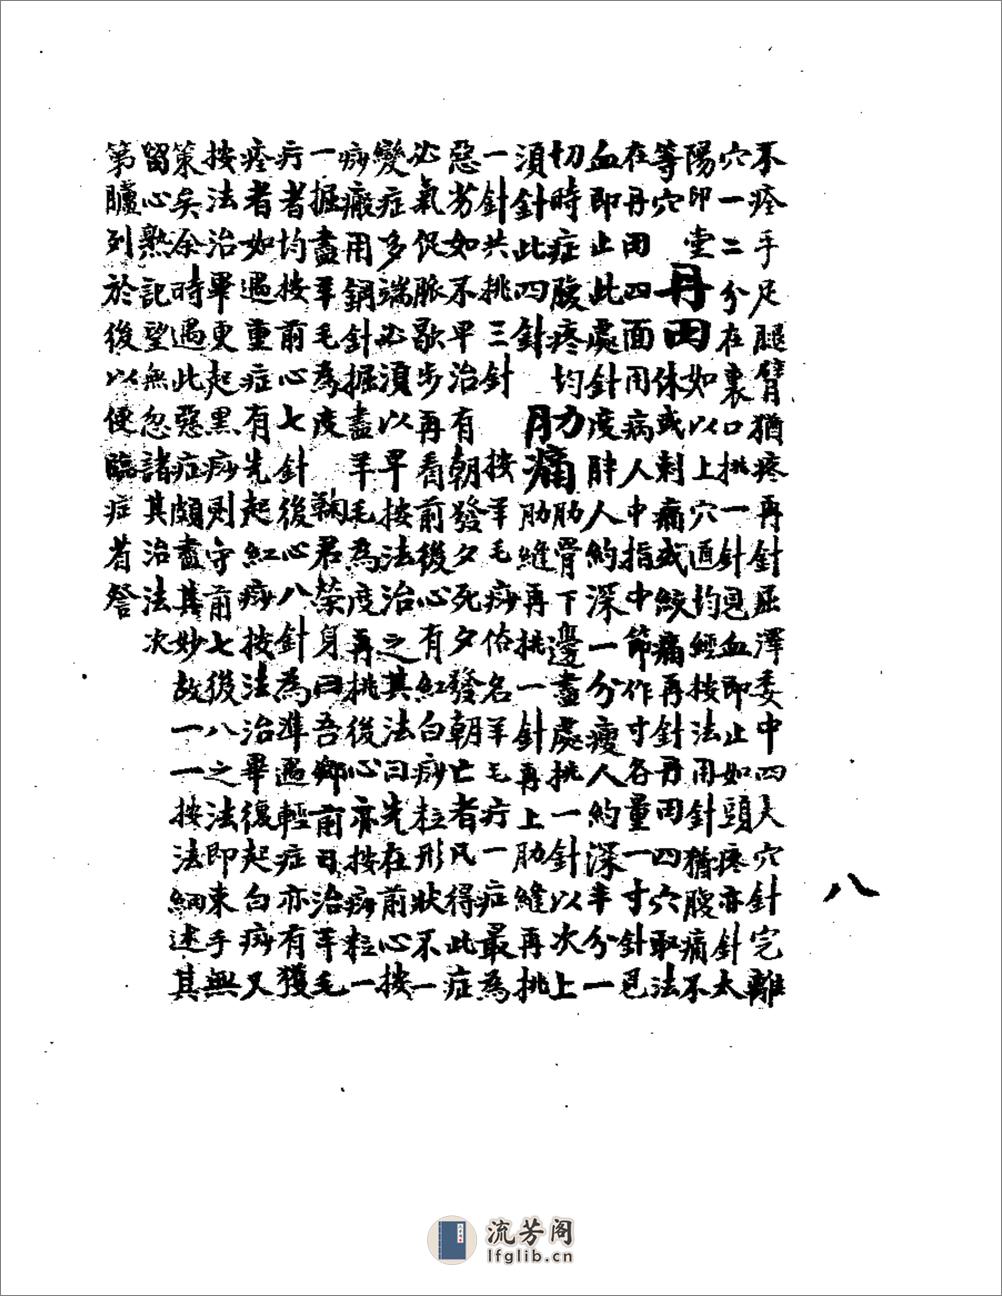 不痊手足腿臂猶疼再針屈澤委中四大穴針完離
穴一二分在裏口挑一針見血即止如頭疼亦針太
陽印堂 丹田 如以上穴道均經按法用針猶腹痛不
等穴 休或刺痛或絞痛再針丹田四穴取法
在丹田四面用病人中指中節作寸各量一寸針見
血即止此處針度胖人約深一分瘦人約深半分一
切時症腹疼均 肋痛 肋骨下邊盡處挑一針以次上
須針此四針 肋縫再挑一針再上肋縫再挑
一針共挑三針 按羊毛痧俗名羊毛疔一症最為
惡劣如不早治有朝發夕死夕發朝亡者凡得此症
必氣促脈歇步再看前後心有紅白痧粒形狀不一
變症多端必須以早按法治之其法曰先在前心按
痧瘢用鋼針掘盡羊毛為度再挑後心亦按痧粒一
一掘盡羊毛為度 鞠君榮身曰吾鄉前日治羊毛
疔者均按前心七針後心八針為準遇輕症亦有獲
痊者如遇重症有先起紅痧按法治畢復起白痧又
按法治畢更起黑痧則守前七後八之法即束手無
策矣余時遇此惡症頗盡其妙故一一按法細述其
留心熟記望無忽諸其治法次
第臚列於後以便臨症者詧
八
流芳阁
lfglib.cn